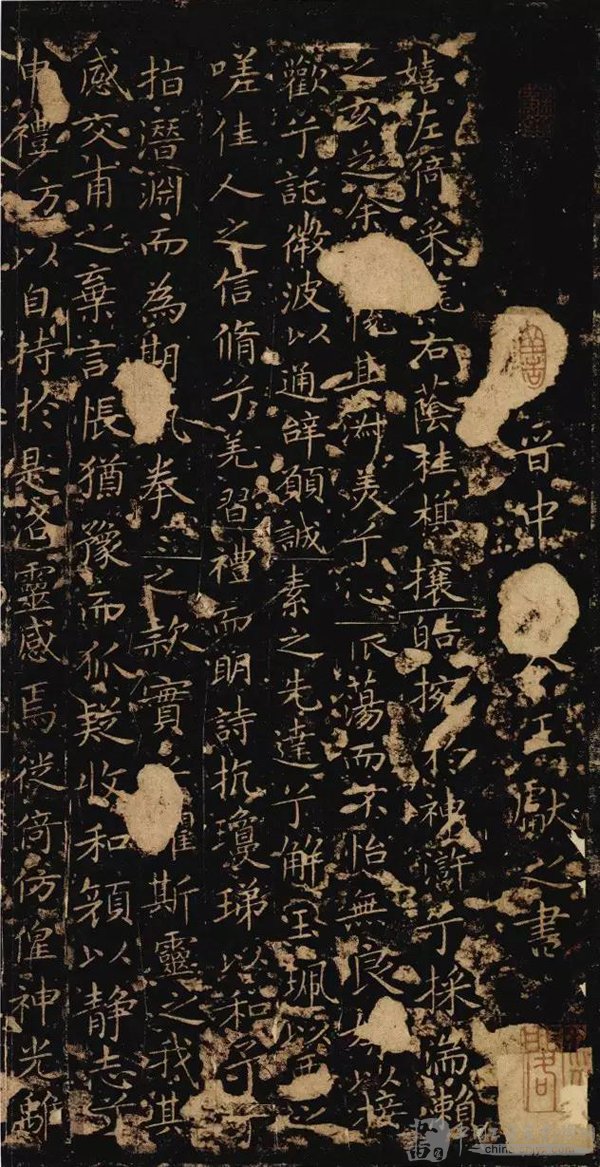 晉中令王獻之書
嬉左倚采旄右蔭桂棋攘皓捥於神滸兮採湍瀨
之玄芝余悅其淑美兮心振蕩而不怡無良媒以接
歡兮託微波以通辭願誠素之先達兮解玉珮以要之
嗟佳人之信脩兮羌習禮而明詩抗瓊珶以和予兮
指潛淵而為期執拳〻之款實兮懼斯靈之我其
感交甫之棄言悵猶豫而狐疑收和顏以静志兮
申禮防以自持於是洛靈感焉徙倚仿偟神光離